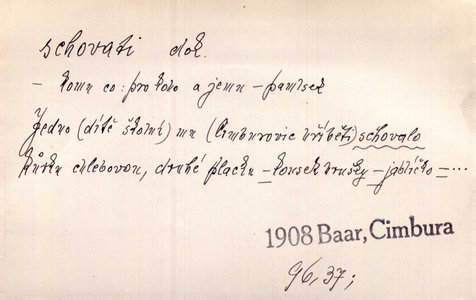 schovati dok.
– komu co: pro koho a jemu – pamlsek
Jedno (dítě školní) mu (Cimburovic hříběti) schovalo
kůrku chlebovou, druhé placku – kousek hrušky – jablíčko – ...
1908 Baar, Cimbura
96, 37;